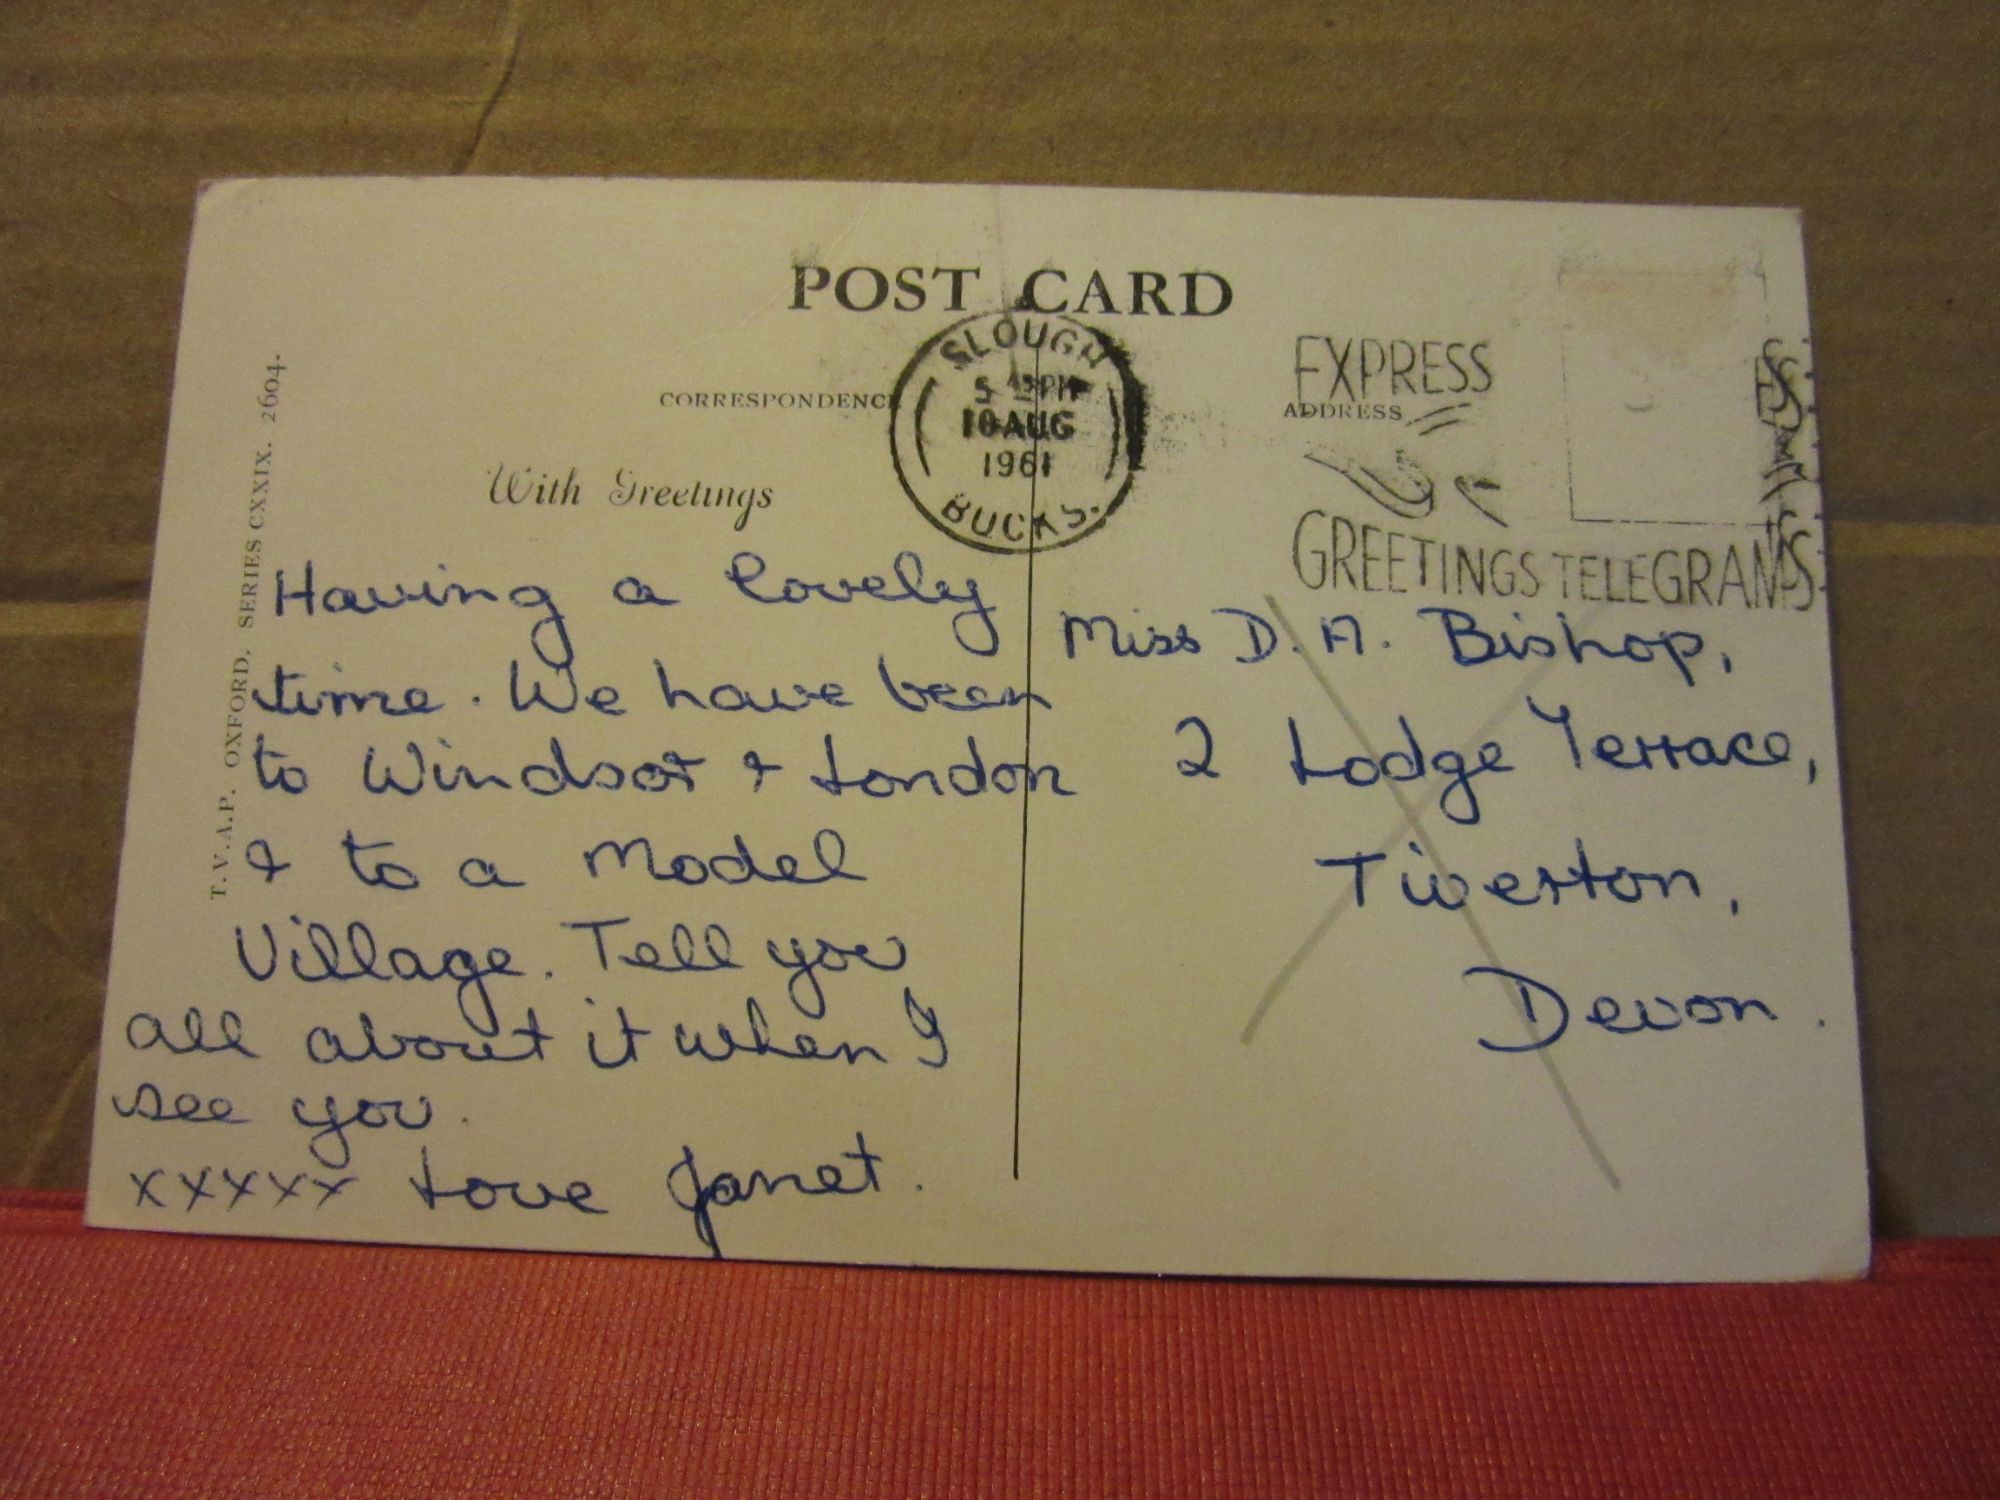 POST CARD
CORRESPONDENCE
ADDRESS
With Greetings
SLOUGH
5 45 PM
10 AUG
1961
BUCKS.
EXPRESS
GREETINGS TELEGRAMS
T.V.A.P. OXFORD. SERIES CXXIX. 2604.
Having a lovely
time. We have been
to Windsor & London
& to a Model
Village. Tell you
all about it when I
see you.
xxxxx Love Janet.
Miss D. A. Bishop,
2 Lodge Terrace,
Tiverton,
Devon.